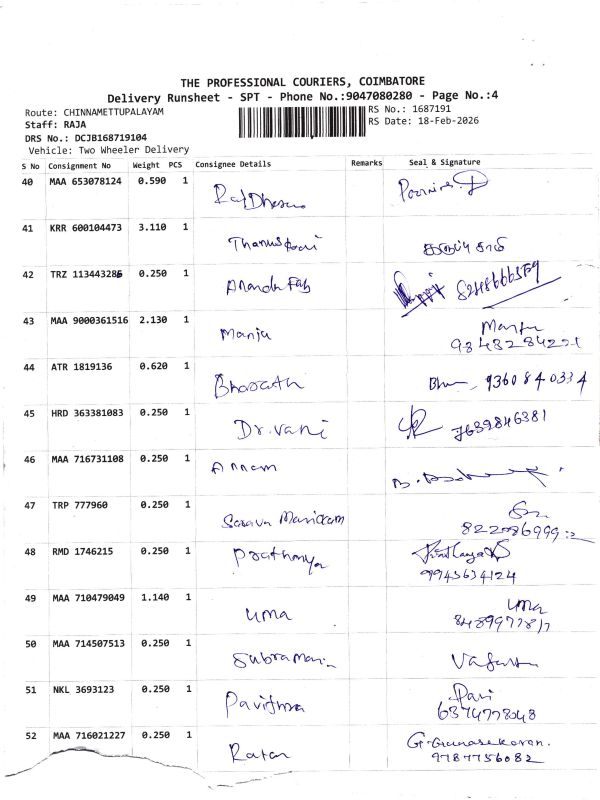 THE PROFESSIONAL COURIERS, COIMBATORE
Delivery Runsheet - SPT - Phone No.:9047080280 - Page No.:4
Route: CHINNAMETTUPALAYAM
RS No.: 1687191
Staff: RAJA
RS Date: 18-Feb-2026
DRS No.: DCJB168719104
Vehicle: Two Wheeler Delivery
S No Consignment No Weight PCS Consignee Details Remarks Seal & Signature
40 MAA 653078124 0.590 1
41 KRR 600104473 3.110 1
42 TRZ 113443286 0.250 1
43 MAA 9000361516 2.130 1 Manju
9343284221
44 ATR 1819136 0.620 1 Bharath 9360840334
45 HRD 363381083 0.250 1 Dr.vani 7639846381
46 MAA 716731108 0.250 1 Annam
47 TRP 777960 0.250 1 Manickam
48 RMD 1746215 0.250 1 Prathanya
9943634124
49 MAA 710479049 1.140 1 uma uma
50 MAA 714507513 0.250 1 Subramani
51 NKL 3693123 0.250 1 Pavithra Pavi
6374778048
52 MAA 716021227 0.250 1 Ratan G.Gunasekaran.
9787756082